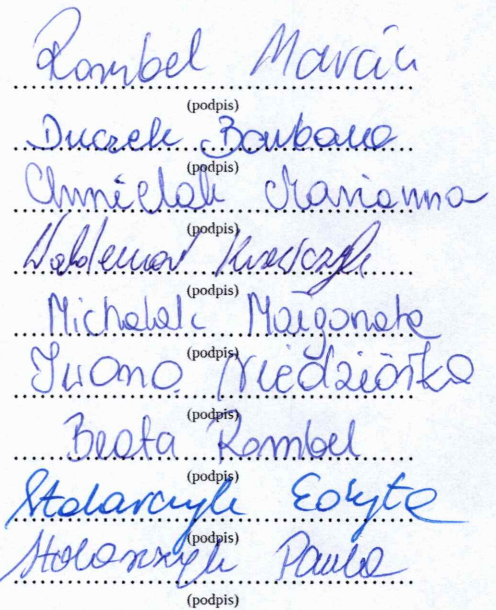 Rombel Marcin
(podpis)
Duczek Barbara
(podpis)
Chmielak Marianna
(podpis)
Waldemar Krawczyk
(podpis)
Michalak Małgorzata
(podpis)
Iwona Niedziółka
(podpis)
Beata Rombel
(podpis)
Stolarczyk Edyta
(podpis)
Stolarczyk Paula
(podpis)